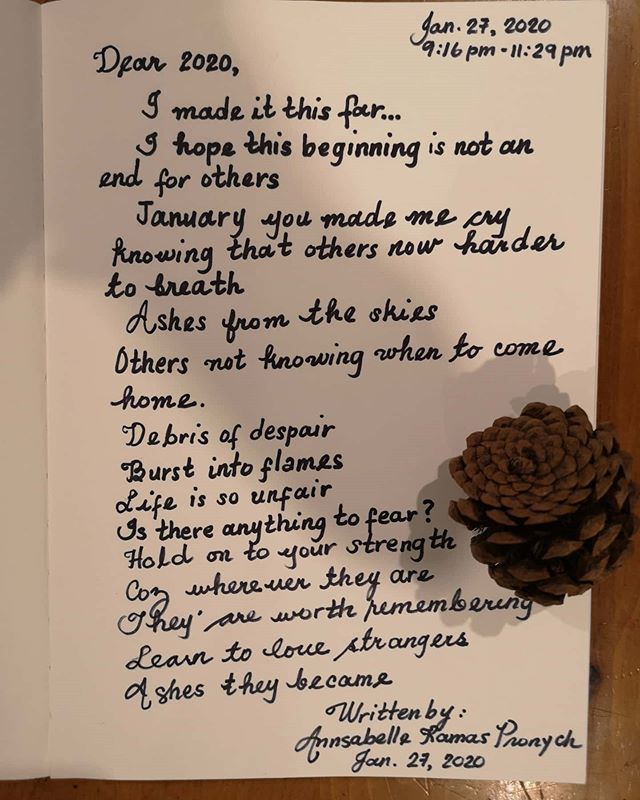 Jan. 27, 2020
9:16 pm - 11:29 pm
Dear 2020,
I made it this far...
I hope this beginning is not an
end for others
January you made me cry
knowing that others now harder
to breath
Ashes from the skies
Others not knowing when to come
home.
Debris of despair
Burst into flames
Life is so unfair
Is there anything to fear?
Hold on to your strength
Coz wherever they are
They' are worth remembering
Learn to love strangers
Ashes they became
Written by:
Annsabelle Ramas Pronych
Jan. 27, 2020